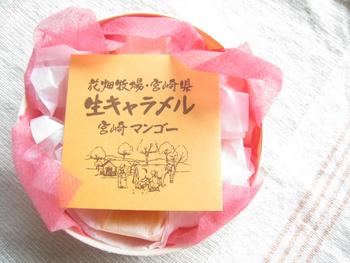 花畑牧場・宮崎県
生キャラメル
宮崎マンゴー